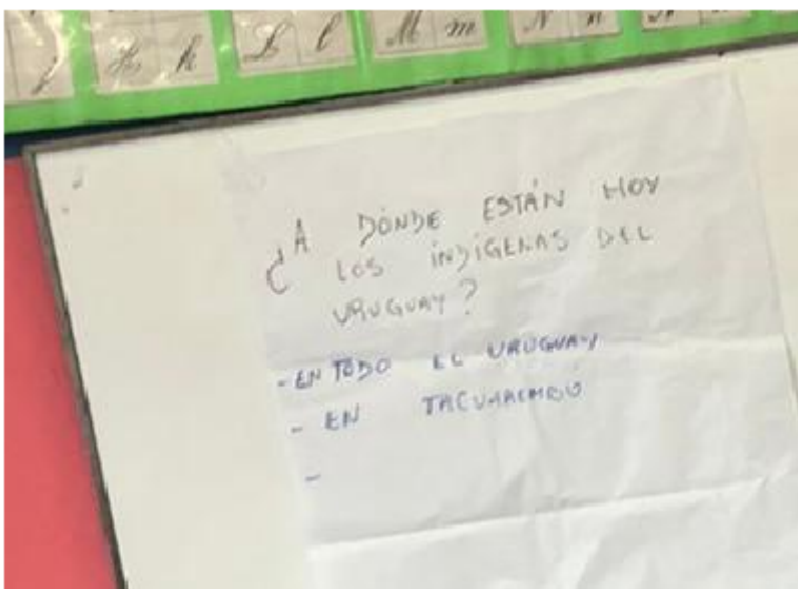 L l M m N n
¿A DÓNDE ESTÁN HOY
LOS INDÍGENAS DEL
URUGUAY?
- EN TODO EL URUGUAY
- EN TACUAREMBÓ
-